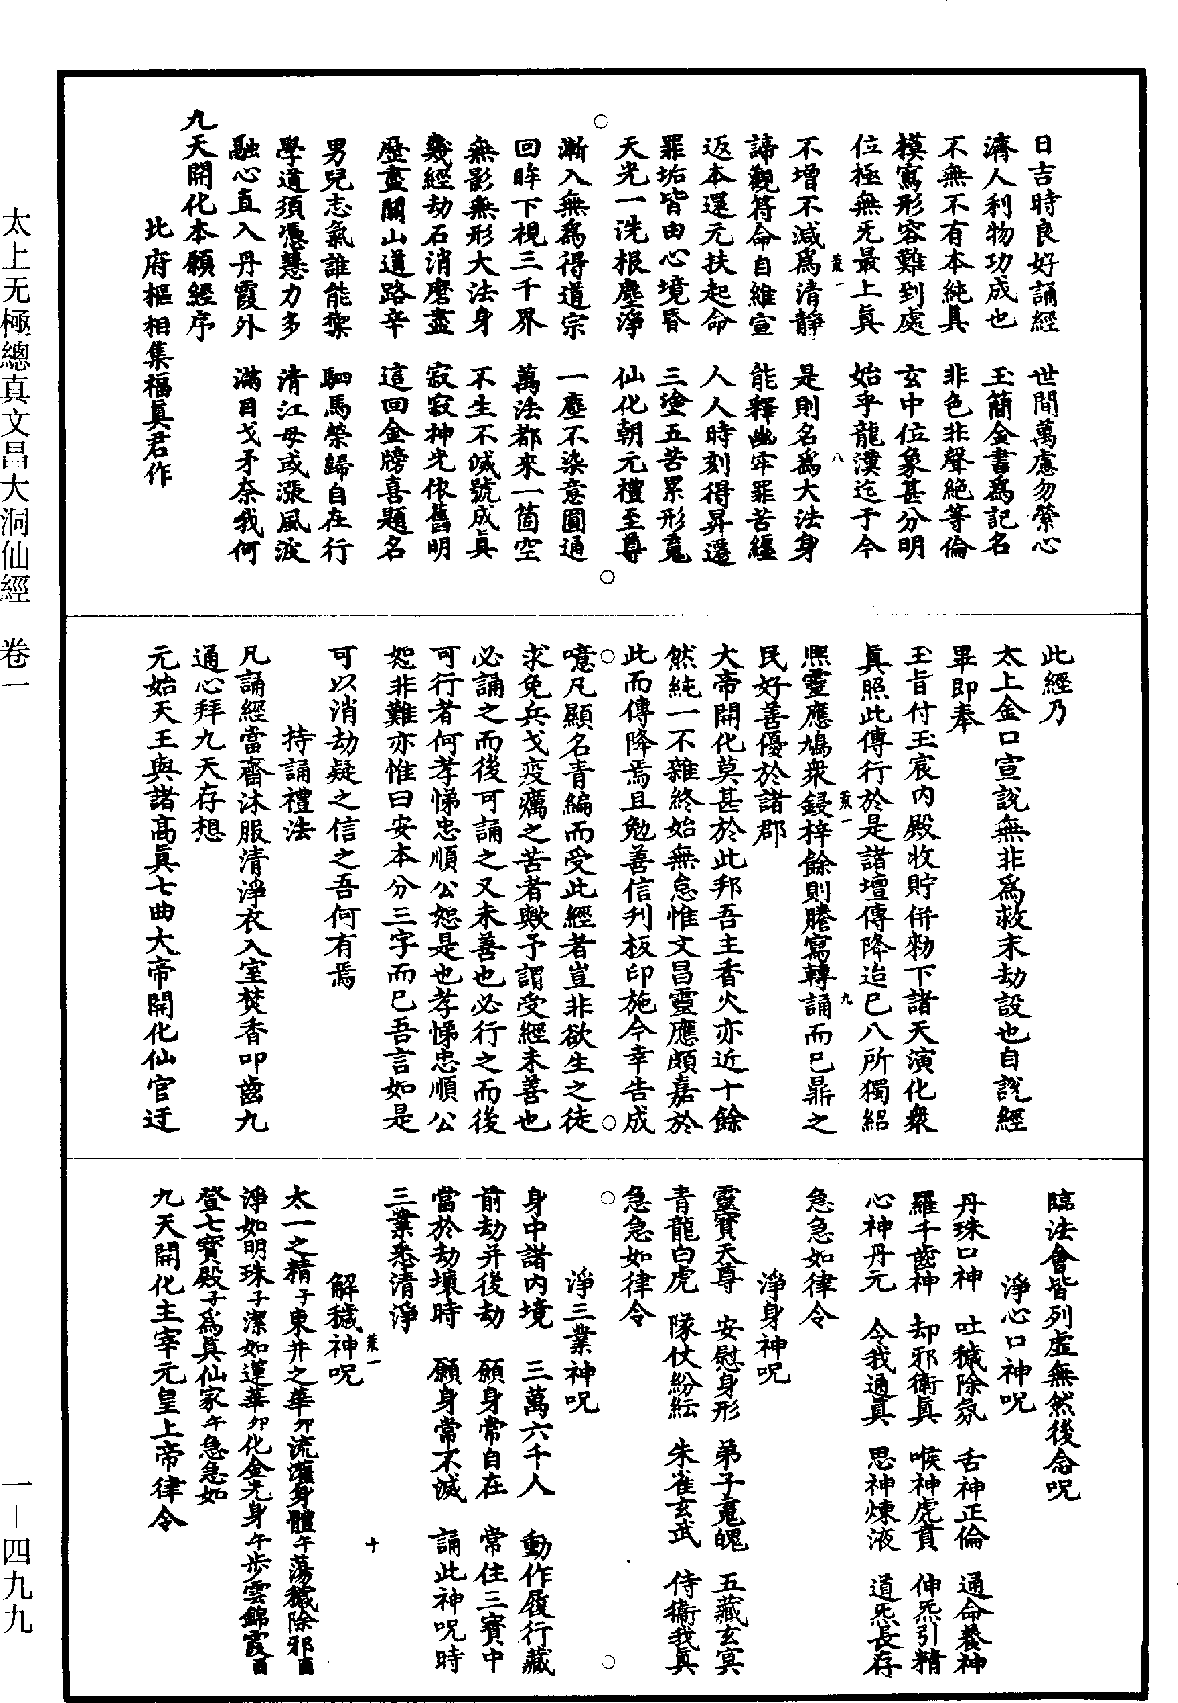 日吉時良好誦經　世間萬慮勿縈心
濟人利物功成也　玉簡金書爲記名
不無不有本純真　非色非聲絕等倫
模寫形容難到處　玄中位象甚分明
位極無无最上眞　始乎龍漢迄于今
不增不減爲清靜　是則名爲大法身
諦觀符命自維宣　能釋幽牢罪苦纏
返本還元扶起命　人人時刻得昇遷
罪垢皆由心境昏　三塗五苦累形䰟
天光一洗根塵淨　仙化朝元禮至尊
漸入無爲得道宗　一塵不染意圓通
回眸下視三千界　萬法都來一箇空
無影無形大法身　不生不滅號成眞
幾經劫石消磨盡　寂寂神光依舊明
歷盡關山道路辛　這回金牓喜題名
男兒志氣誰能楽　駟馬榮歸自在行
學道須憑慧力多　清江毋或漲風波
融心直入丹霞外　滿目戈矛奈我何
九天開化本願經序
北府樞相集福眞君作
此經乃
太上金口宣說無非爲救末劫設也自說經
畢即奉
玉旨付玉宸內殿收貯併勑下諸天演化衆
眞照此傳行於是諸壇傳降迨已八所獨紹
熙靈應鳩衆鋟梓餘則謄寫轉誦而已鼎之
民好善優於諸郡
大帝開化莫甚於此邦吾主香火亦近十餘
然純一不雜終始無怠惟文昌靈應頗嘉於
此而傳降焉且勉善信刋板印施今幸告成
噫凡顯名青編而受此經者豈非欲生之徒
求免兵戈疫癘之苦者歟予謂受經未善也
必誦之而後可誦之又未善也必行之而後
可行者何孝悌忠順公恕是也孝悌忠順公
恕非難亦惟曰安本分三字而已吾言如是
可以消劫疑之信之吾何有焉
持誦禮法
凡誦經當齋沐服清淨衣入室焚香叩齒九
通心拜九天存想
元始天王與諸高眞七曲大帝開化仙官迂
臨法會皆列虛無然後念呪
淨心口神呪
丹珠口神　吐穢除氛　舌神正倫　通命養神
羅千齒神　却邪衛眞　喉神虎賁　伸炁引精
心神丹元　令我通眞　思神煉液　道炁長存
急急如律令
淨身神呪
靈寶天尊　安慰身形　弟子䰟魄　五藏玄冥
青龍白虎　隊仗紛紜　朱雀玄武　侍衞我眞
急急如律令
淨三業神呪
身中諸內境　三萬六千人　動作履行藏
前劫并後劫　願身常自在　常住三寶中
當於劫壞時　願身常不滅　誦此神呪時
三業悉清淨
解穢神呪
太一之精子東井之華卯流灌身體午蕩穢除邪酉
淨如明珠子潔如蓮華卯化金光身午步雲錦霞酉
登七寶殿子爲眞仙家午急急如
九天開化主宰元皇上帝律令
太上无極總真文昌大洞仙經　卷一
一—四九九